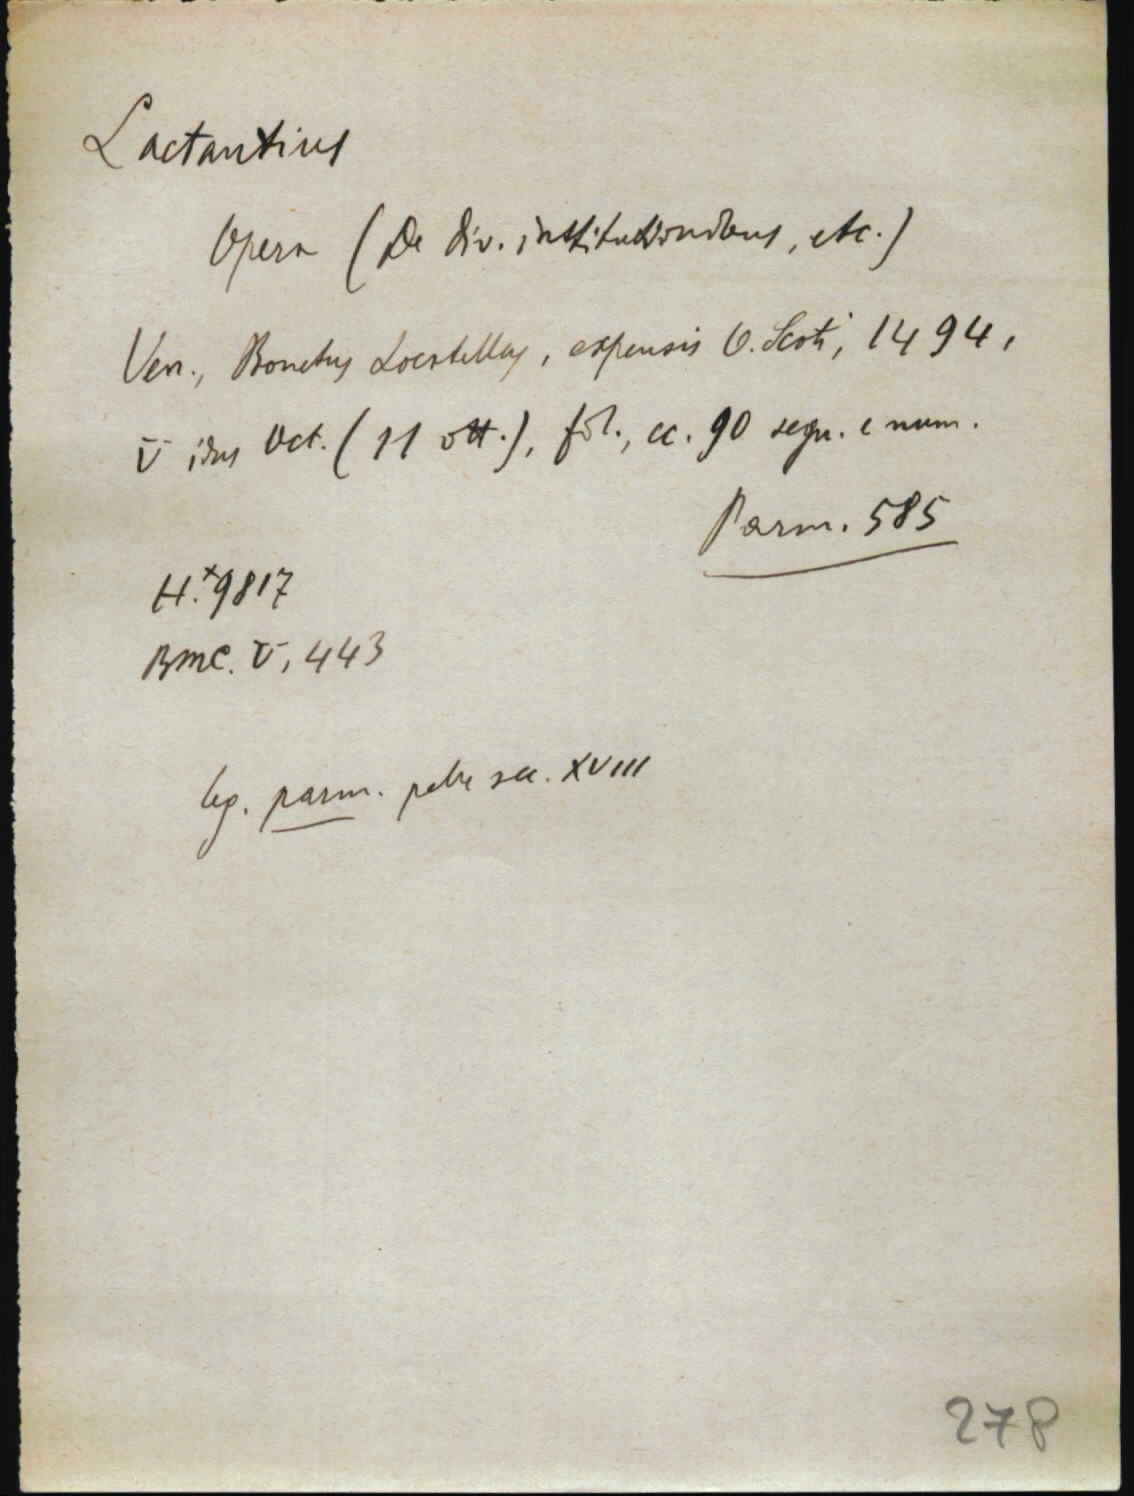 Lactantius
Opera (De div. institutionibus, etc.)
Ven., Bonetus Locatellus, expensis O. Scoti, 1494,
V idus Oct. (11 ott.), fol., cc. 90 segn. e num.
Parm. 585
H.*9817
BMC. V, 443
leg. parm. pelle sec. XVIII
278